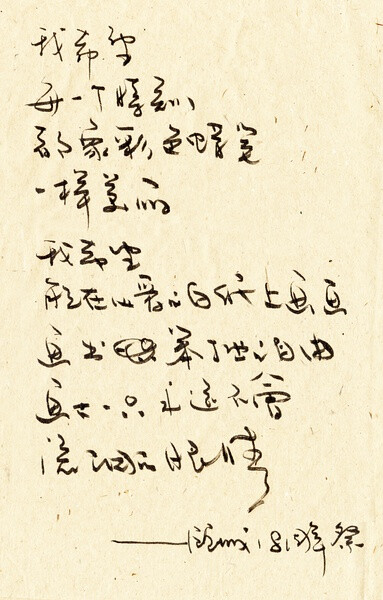 我希望
每一个時刻
都象彩色蜡笔
一样美丽
我希望
能在心爱的白纸上画画
画出笨拙的自由
画下一只永遠不會
流泪的眼睛
——顾城